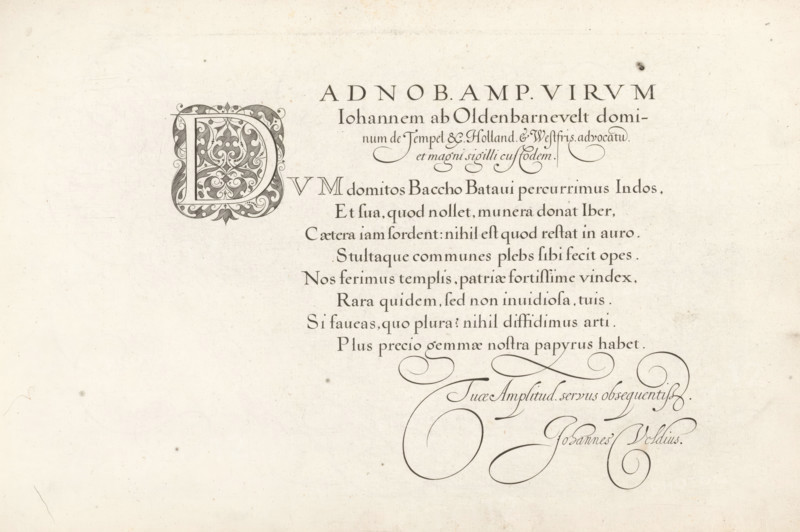 AD NOB. AMP. VIRVM
Iohannem ab Oldenbarnevelt domi-
num de Tempel &c. Holland. & Westfris. advocatū.
et magni sigilli custodem.
DVM domitos Baccho Bataui percurrimus Indos,
Et sua, quod nollet, munera donat Iber,
Cætera iam sordent: nihil est quod restat in auro.
Stultaque communes plebs sibi fecit opes.
Nos ferimus templis, patriæ fortissime vindex,
Rara quidem, sed non inuidiosa, tuis.
Si faueas, quo plura? nihil diffidimus arti.
Plus precio gemmæ nostra papyrus habet.
Tuæ Amplitud. servus obsequentiss.
Johannes Veldius.